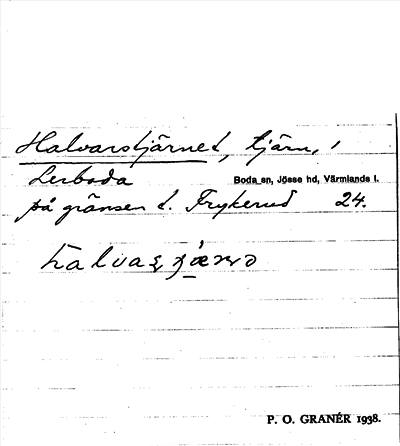 Halvarstjärnet, tjärn, i
Lerboda Boda sn, Jösse hd, Värmlands l.
på gränsen t. Frykerud 24.
P. O. GRANÉR 1938.